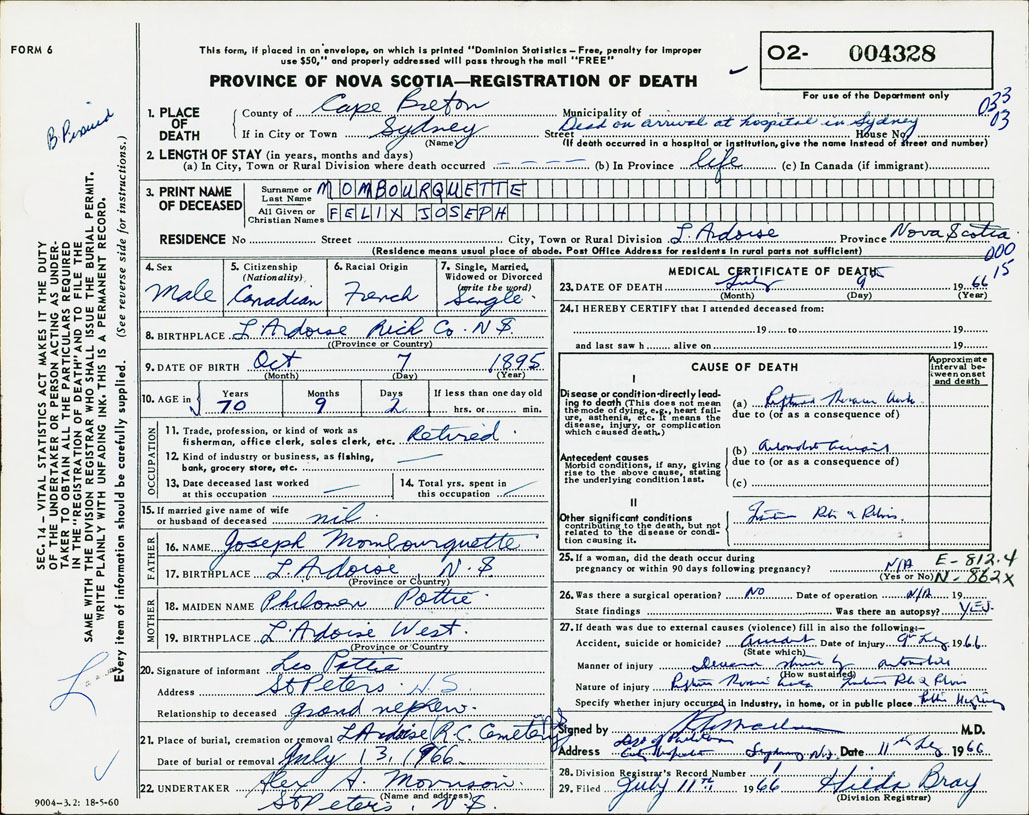 FORM 6
This form, if placed in an envelope, on which is printed "Dominion Statistics – Free, penalty for improper
use $50," and properly addressed will pass through the mail "FREE"
O2- 004328
PROVINCE OF NOVA SCOTIA—REGISTRATION OF DEATH
For use of the Department only
033
03
1. PLACE OF DEATH
County of Cape Breton Municipality of
If in City or Town Sydney Street Dead on arrival at hospital in Sydney House No
(Name) (If death occurred in a hospital or institution, give the name instead of street and number)
2. LENGTH OF STAY (in years, months and days)
(a) In City, Town or Rural Division where death occurred – – – – – (b) In Province life (c) In Canada (if immigrant)
3. PRINT NAME OF DECEASED
Surname or Last Name MOMBOURQUETTE
All Given or Christian Names FELIX JOSEPH
RESIDENCE No Street City, Town or Rural Division L'Ardoise Province Nova Scotia
(Residence means usual place of abode. Post Office Address for residents in rural parts not sufficient)
000
15
4. Sex Male
5. Citizenship (Nationality) Canadian
6. Racial Origin French
7. Single, Married, Widowed or Divorced (write the word) Single
8. BIRTHPLACE L'Ardoise Rich Co. N.S.
(Province or Country)
9. DATE OF BIRTH Oct 7 1895
(Month) (Day) (Year)
10. AGE in Years 70 Months 9 Days 2 If less than one day old hrs. or min.
OCCUPATION
11. Trade, profession, or kind of work as
fisherman, office clerk, sales clerk, etc. Retired.
12. Kind of industry or business, as fishing,
bank, grocery store, etc. —
13. Date deceased last worked
at this occupation —
14. Total yrs. spent in
this occupation —
15. If married give name of wife
or husband of deceased nil.
FATHER
16. NAME Joseph Mombourquette
17. BIRTHPLACE L'Ardoise N.S.
(Province or Country)
MOTHER
18. MAIDEN NAME Philomen Pottie
19. BIRTHPLACE L'Ardoise West.
(Province or Country
20. Signature of informant Leo Pottie
Address St Peters N.S.
Relationship to deceased grand nephew.
21. Place of burial, cremation or removal L'Ardoise R.C. Cemetery
Date of burial or removal July 13, 1966
22. UNDERTAKER Alex A. Morrison.
(Name and address)
St Peters, N.S.
9004-3.2: 18-5-60
MEDICAL CERTIFICATE OF DEATH
23. DATE OF DEATH July 9th 1966
(Month) (Day) (Year)
24. I HEREBY CERTIFY that I attended deceased from:
19 to 19
and last saw h alive on 19
CAUSE OF DEATH
Approximate interval between onset and death
I
Disease or condition directly leading to death (This does not mean the mode of dying, e.g., heart failure, asthenia, etc. It means the disease, injury, or complication which caused death.)
(a) Ruptured Thoracic Aorta
due to (or as a consequence of)
Antecedent causes
Morbid conditions, if any, giving rise to the above cause, stating the underlying condition last.
(b) Automobile Accident
due to (or as a consequence of)
(c)
II
Other significant conditions
contributing to the death, but not related to the disease or condition causing it.
Fracture Ribs & Pelvis.
25. If a woman, did the death occur during
pregnancy or within 90 days following pregnancy? N/A
(Yes or No)
E-812.4
N-862X
26. Was there a surgical operation? NO Date of operation N/A 19
State findings Was there an autopsy? YES
27. If death was due to external causes (violence) fill in also the following:–
Accident, suicide or homicide? Accident Date of injury 9th July 1966
(State which)
Manner of injury Deceased struck by automobile
(How sustained)
Nature of injury Rupture Thoracic Aorta Fracture Ribs & Pelvis
Specify whether injury occurred in industry, in home, or in public place. Public Highway
Signed by M.D.
Address Sydney N.S. Date 11th July 1966
28. Division Registrar's Record Number 1
29. Filed July 11th 1966 Hilda Bray
(Division Registrar)
SEC. 14 – VITAL STATISTICS ACT MAKES IT THE DUTY
OF THE UNDERTAKER OR PERSON ACTING AS UNDER-
TAKER TO OBTAIN ALL THE PARTICULARS REQUIRED
IN THE "REGISTRATION OF DEATH" AND TO FILE THE
SAME WITH THE DIVISION REGISTRAR WHO SHALL ISSUE THE BURIAL PERMIT.
WRITE PLAINLY WITH UNFADING INK. THIS IS A PERMANENT RECORD.
Every item of information should be carefully supplied. (See reverse side for instructions.)